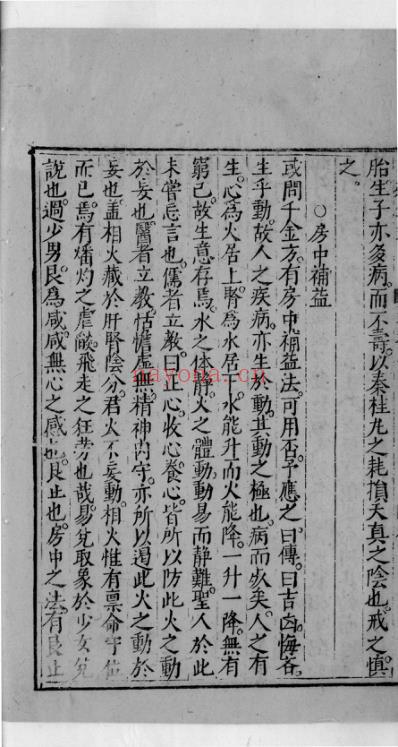 胎生子亦多病。而不壽。以秦桂丸之耗損天真之陰也。戒之慎
之。
○房中補益
或問千金方。有房中補益法。可用否。予應之曰。傳。曰吉凶悔吝。
生乎動。故人之疾病。亦生於動。其動之極也。病而死矣。人之有
生。心為火居上。腎為水居下。水能升而火能降。一升一降。無有
窮已。故生意存焉。水之体靜。火之體動。動易而靜難。聖人於此
未嘗忘言也。儒者立教。曰正心。收心。養心。皆所以防此火之動
於妄也。醫者立教。恬憺虛無。精神內守。亦所以遏此火之動於
妄也。盖相火藏於肝腎陰分。君火不妄動。相火惟有稟命守位
而已。焉有燔灼之虐焰。飛走之狂勢也哉。易兌取象於少女。兌
說也。遇少男艮。為咸。咸無心之感也。艮止也。房中之法。有艮止
nayona.cn